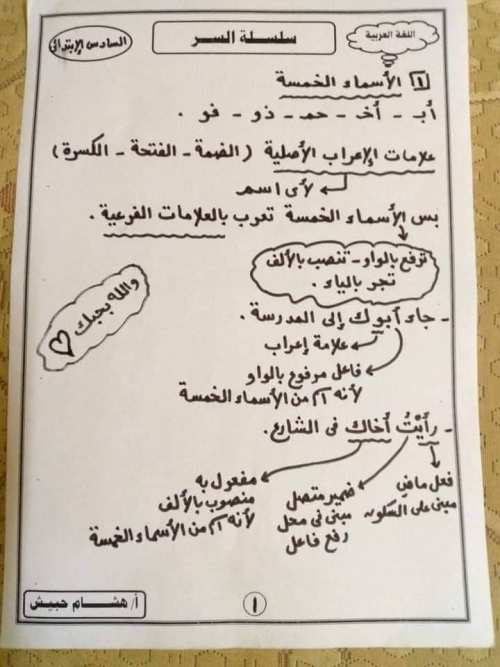 اللغة العربية
سلسلة السر
السادس الإبتدائي
١ الأسماء الخمسة
أب - أخ - حم - ذو - فو .
علامات الإعراب الأصلية (الضمة - الفتحة - الكسرة)
لأى اسم
بس الأسماء الخمسة تعرب بالعلامات الفرعية .
ترفع بالواو - تنصب بالألف
تجر بالياء .
والله بحبك
- جاء أبوك إلى المدرسة .
علامة إعراب
فاعل مرفوع بالواو
لأنه اسم من الأسماء الخمسة
- رأيْتُ أخاك فى الشارع.
فعل ماضٍ
مبنى على السكون
ضمير متصل
مبنى فى محل
رفع فاعل
مفعول به
منصوب بالألف
لأنه اسم من الأسماء الخمسة
١
أ/ هشام حبيش